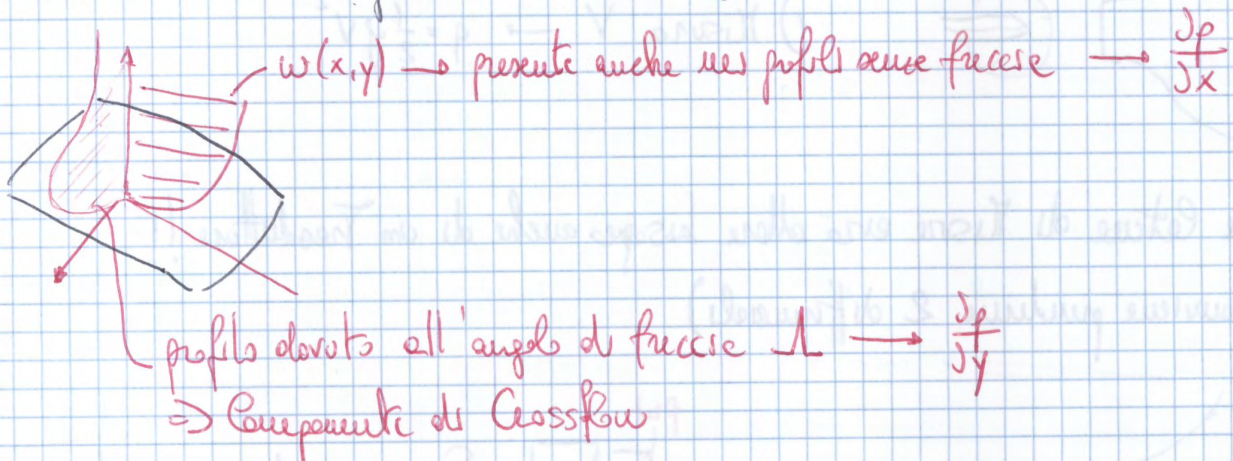 w(x,y) → presente anche nei profili senza freccia → ∂p/∂x
profilo dovuto all'angolo di freccia Λ → ∂p/∂y
=> Componente di Crossflow